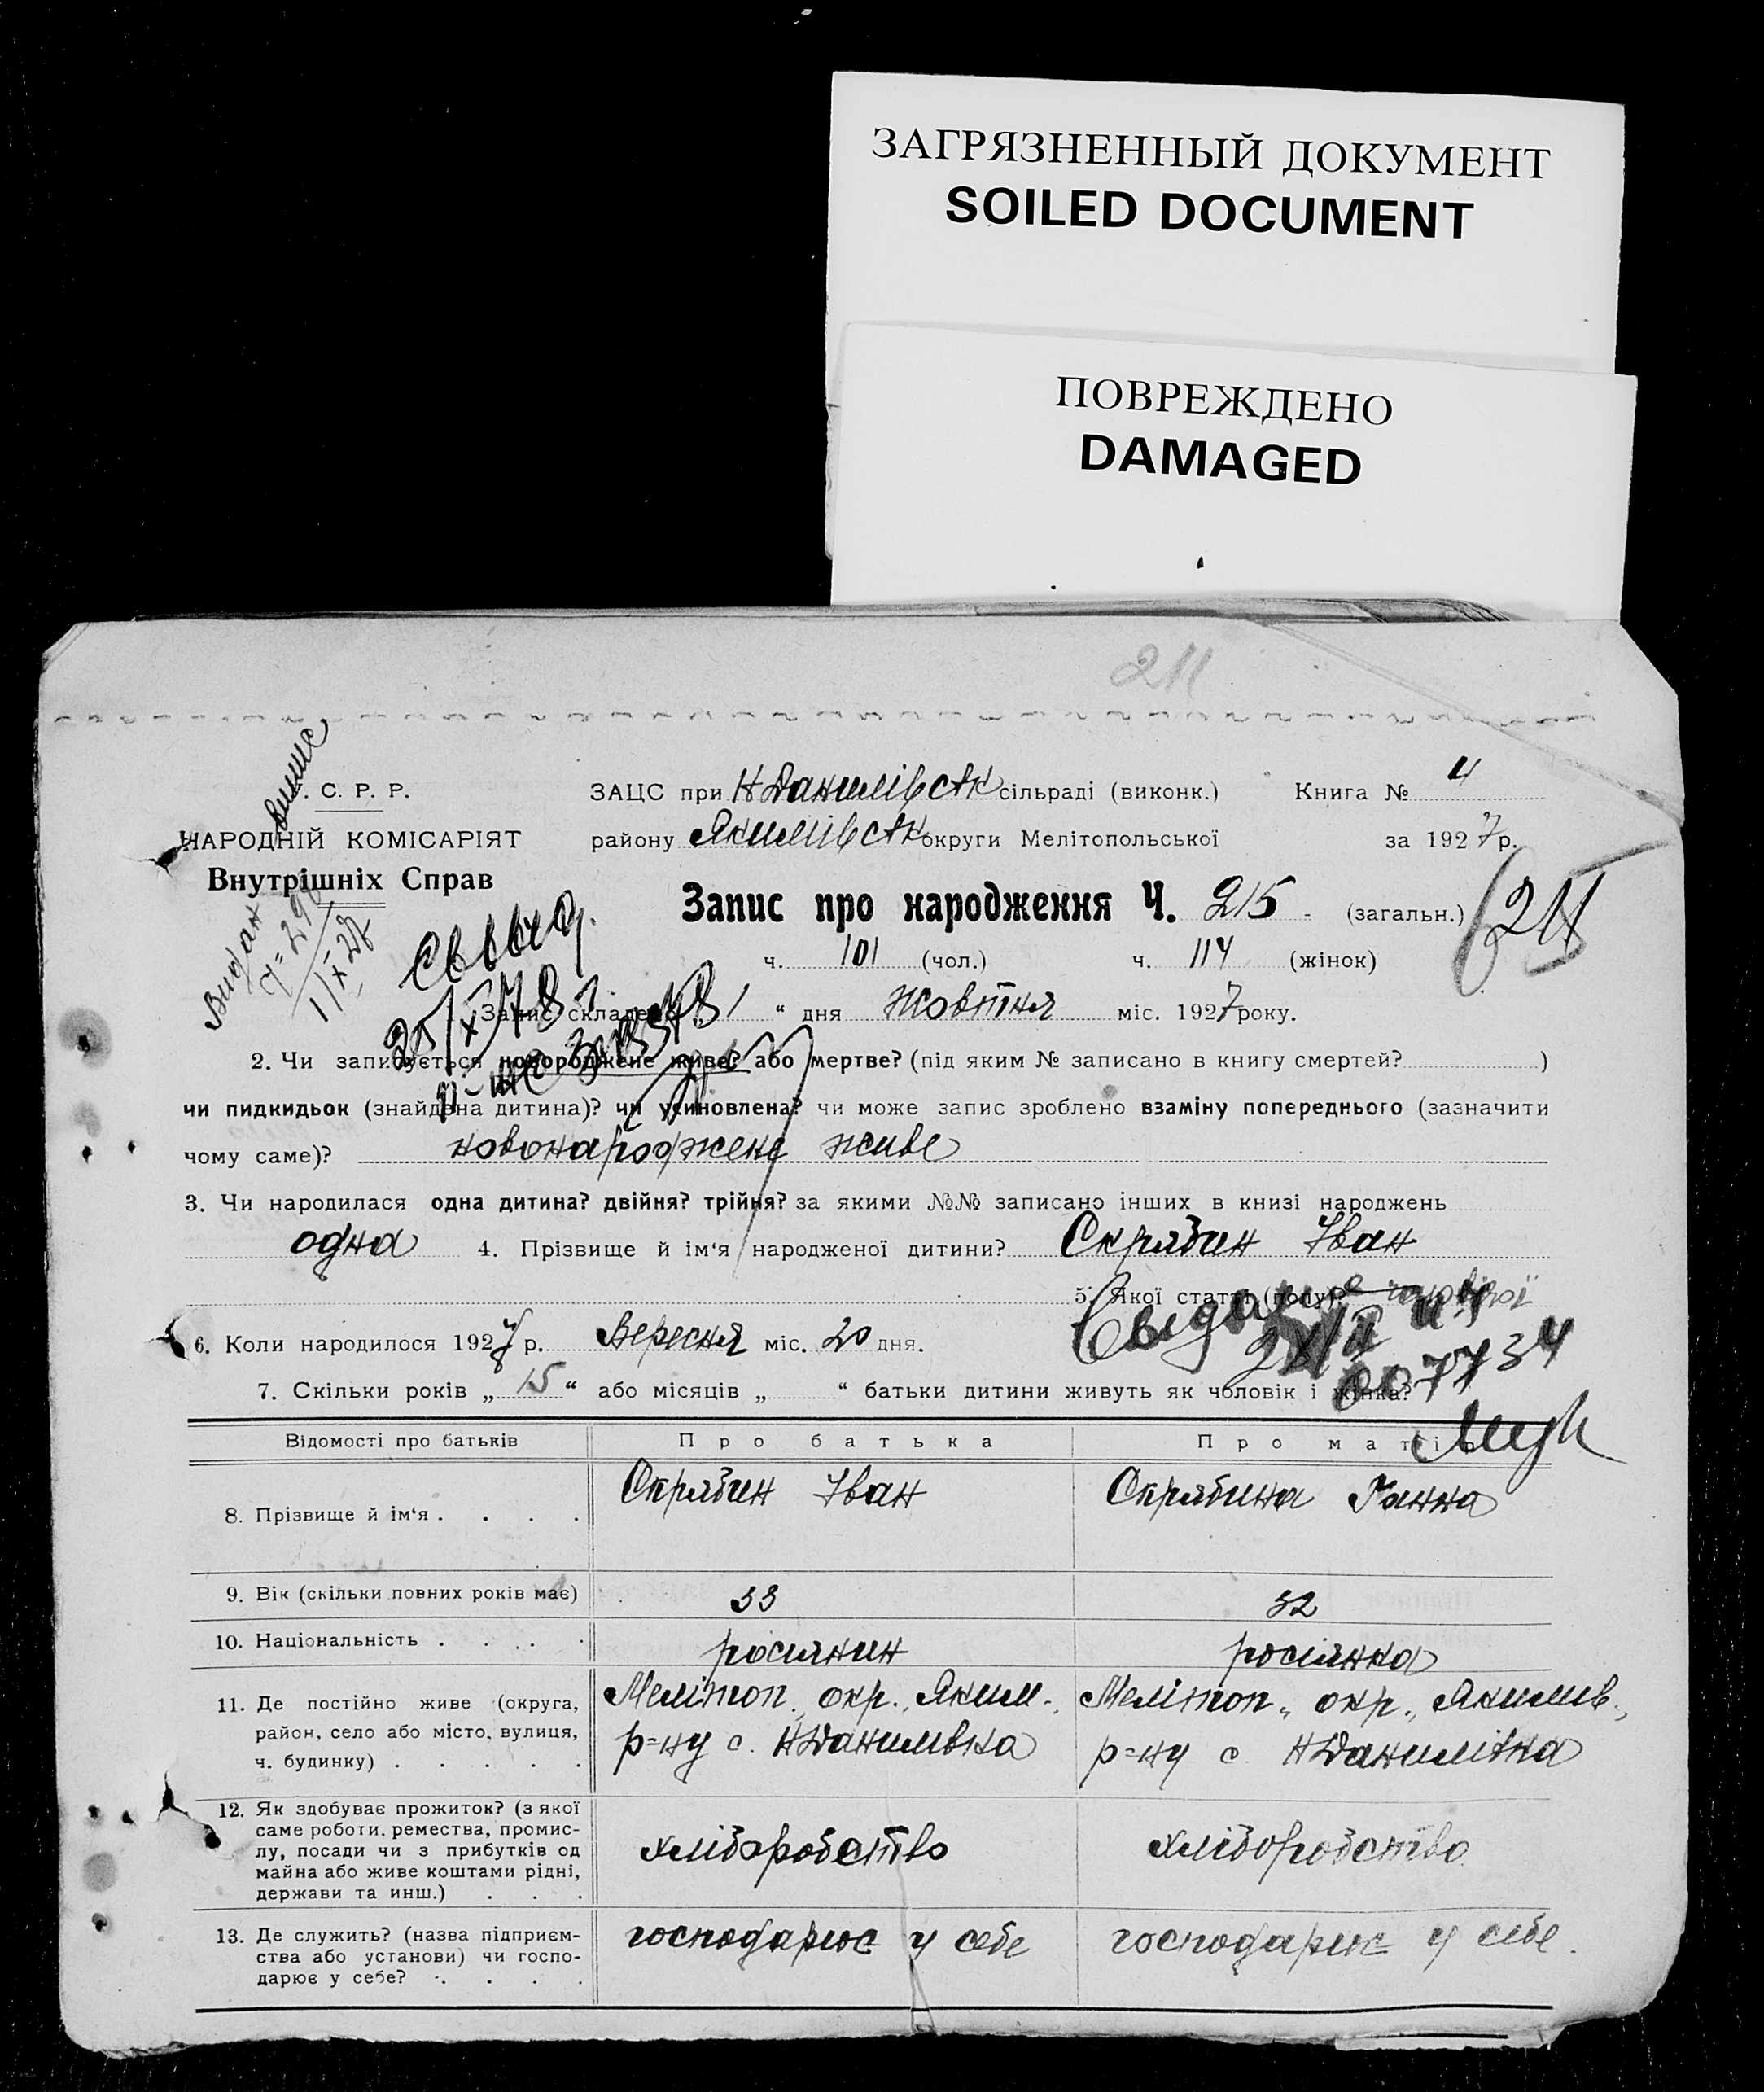 ЗАГРЯЗНЕННЫЙ ДОКУМЕНТ
SOILED DOCUMENT
ПОВРЕЖДЕНО
DAMAGED
211
С. Р. Р.
НАРОДНІЙ КОМІСАРІЯТ
Внутрішніх Справ
ЗАЦС при Н Данилівськ сільраді (виконк.) Книга № 4
району Якимівськ округи Мелітопольської за 1927 р.
Запис про народження Ч. 215 (загальн.)
ч. 101 (чол.) ч. 114 (жінок)
Видан
Запис складено „1“ дня Жовтня міс. 1927 року.
2. Чи записується новороджене живе? або мертве? (під яким № записано в книгу смертей? )
чи пидкидьок (знайдена дитина)? чи усиновлена? чи може запис зроблено взаміну попереднього (зазначити
чому саме)? новонароджене живе
3. Чи народилася одна дитина? двійня? трійня? за якими №№ записано інших в книзі народжень
одна 4. Прізвище й ім'я народженої дитини? Скрябин Іван
5. Якої статті (полу)?
6. Коли народилося 1927 р. Вересня міс. 20 дня.
7. Скільки років „ 15 “ або місяців „ “ батьки дитини живуть як чоловік і жінка?
007734
Відомості про батьків Про батька Про матір
8. Прізвище й ім'я . . . . Скрябин Іван Скрябина Ганна
9. Вік (скільки повних років має) 33 32
10. Національність . . . . росіянин росіянка
11. Де постійно живе (округа, район, село або місто, вулиця, ч. будинку) . . . . .
Мелітоп. окр., Яким. р=ну с. Н Данилівка
Мелітоп., окр., Якимів., р=ну с. Н Данилівка
12. Як здобуває прожиток? (з якої саме роботи, ремества, промислу, посади чи з прибутків од майна або живе коштами рідні, держави та инш.) . . .
хліборобство хліборобство
13. Де служить? (назва підприємства або установи) чи господарює у себе? . . . .
господарює у себе господарює у себе.